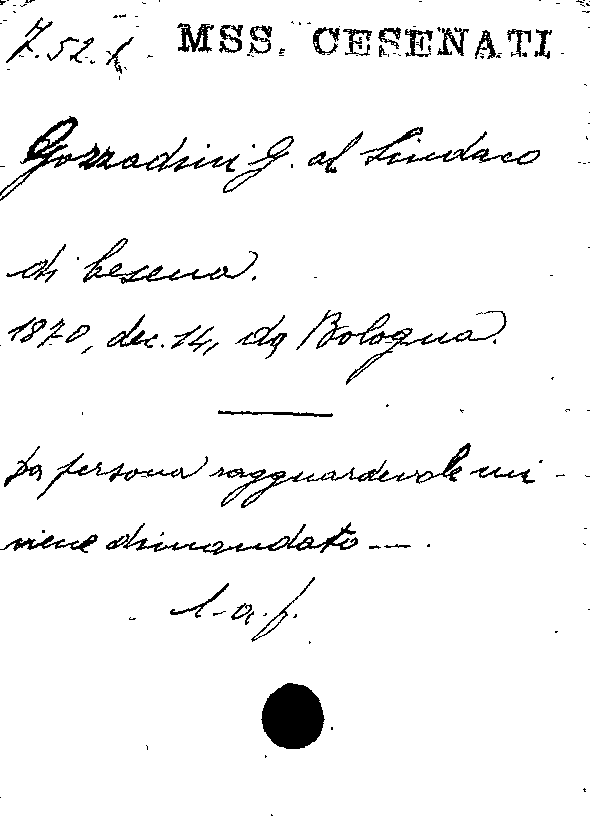 7.52.1 MSS. CESENATI
Gozzadini G. al Sindaco
di Cesena.
1870, dec. 14, da Bologna.
Da persona ragguardevole mi
viene dimandato ---.
l.a.f.